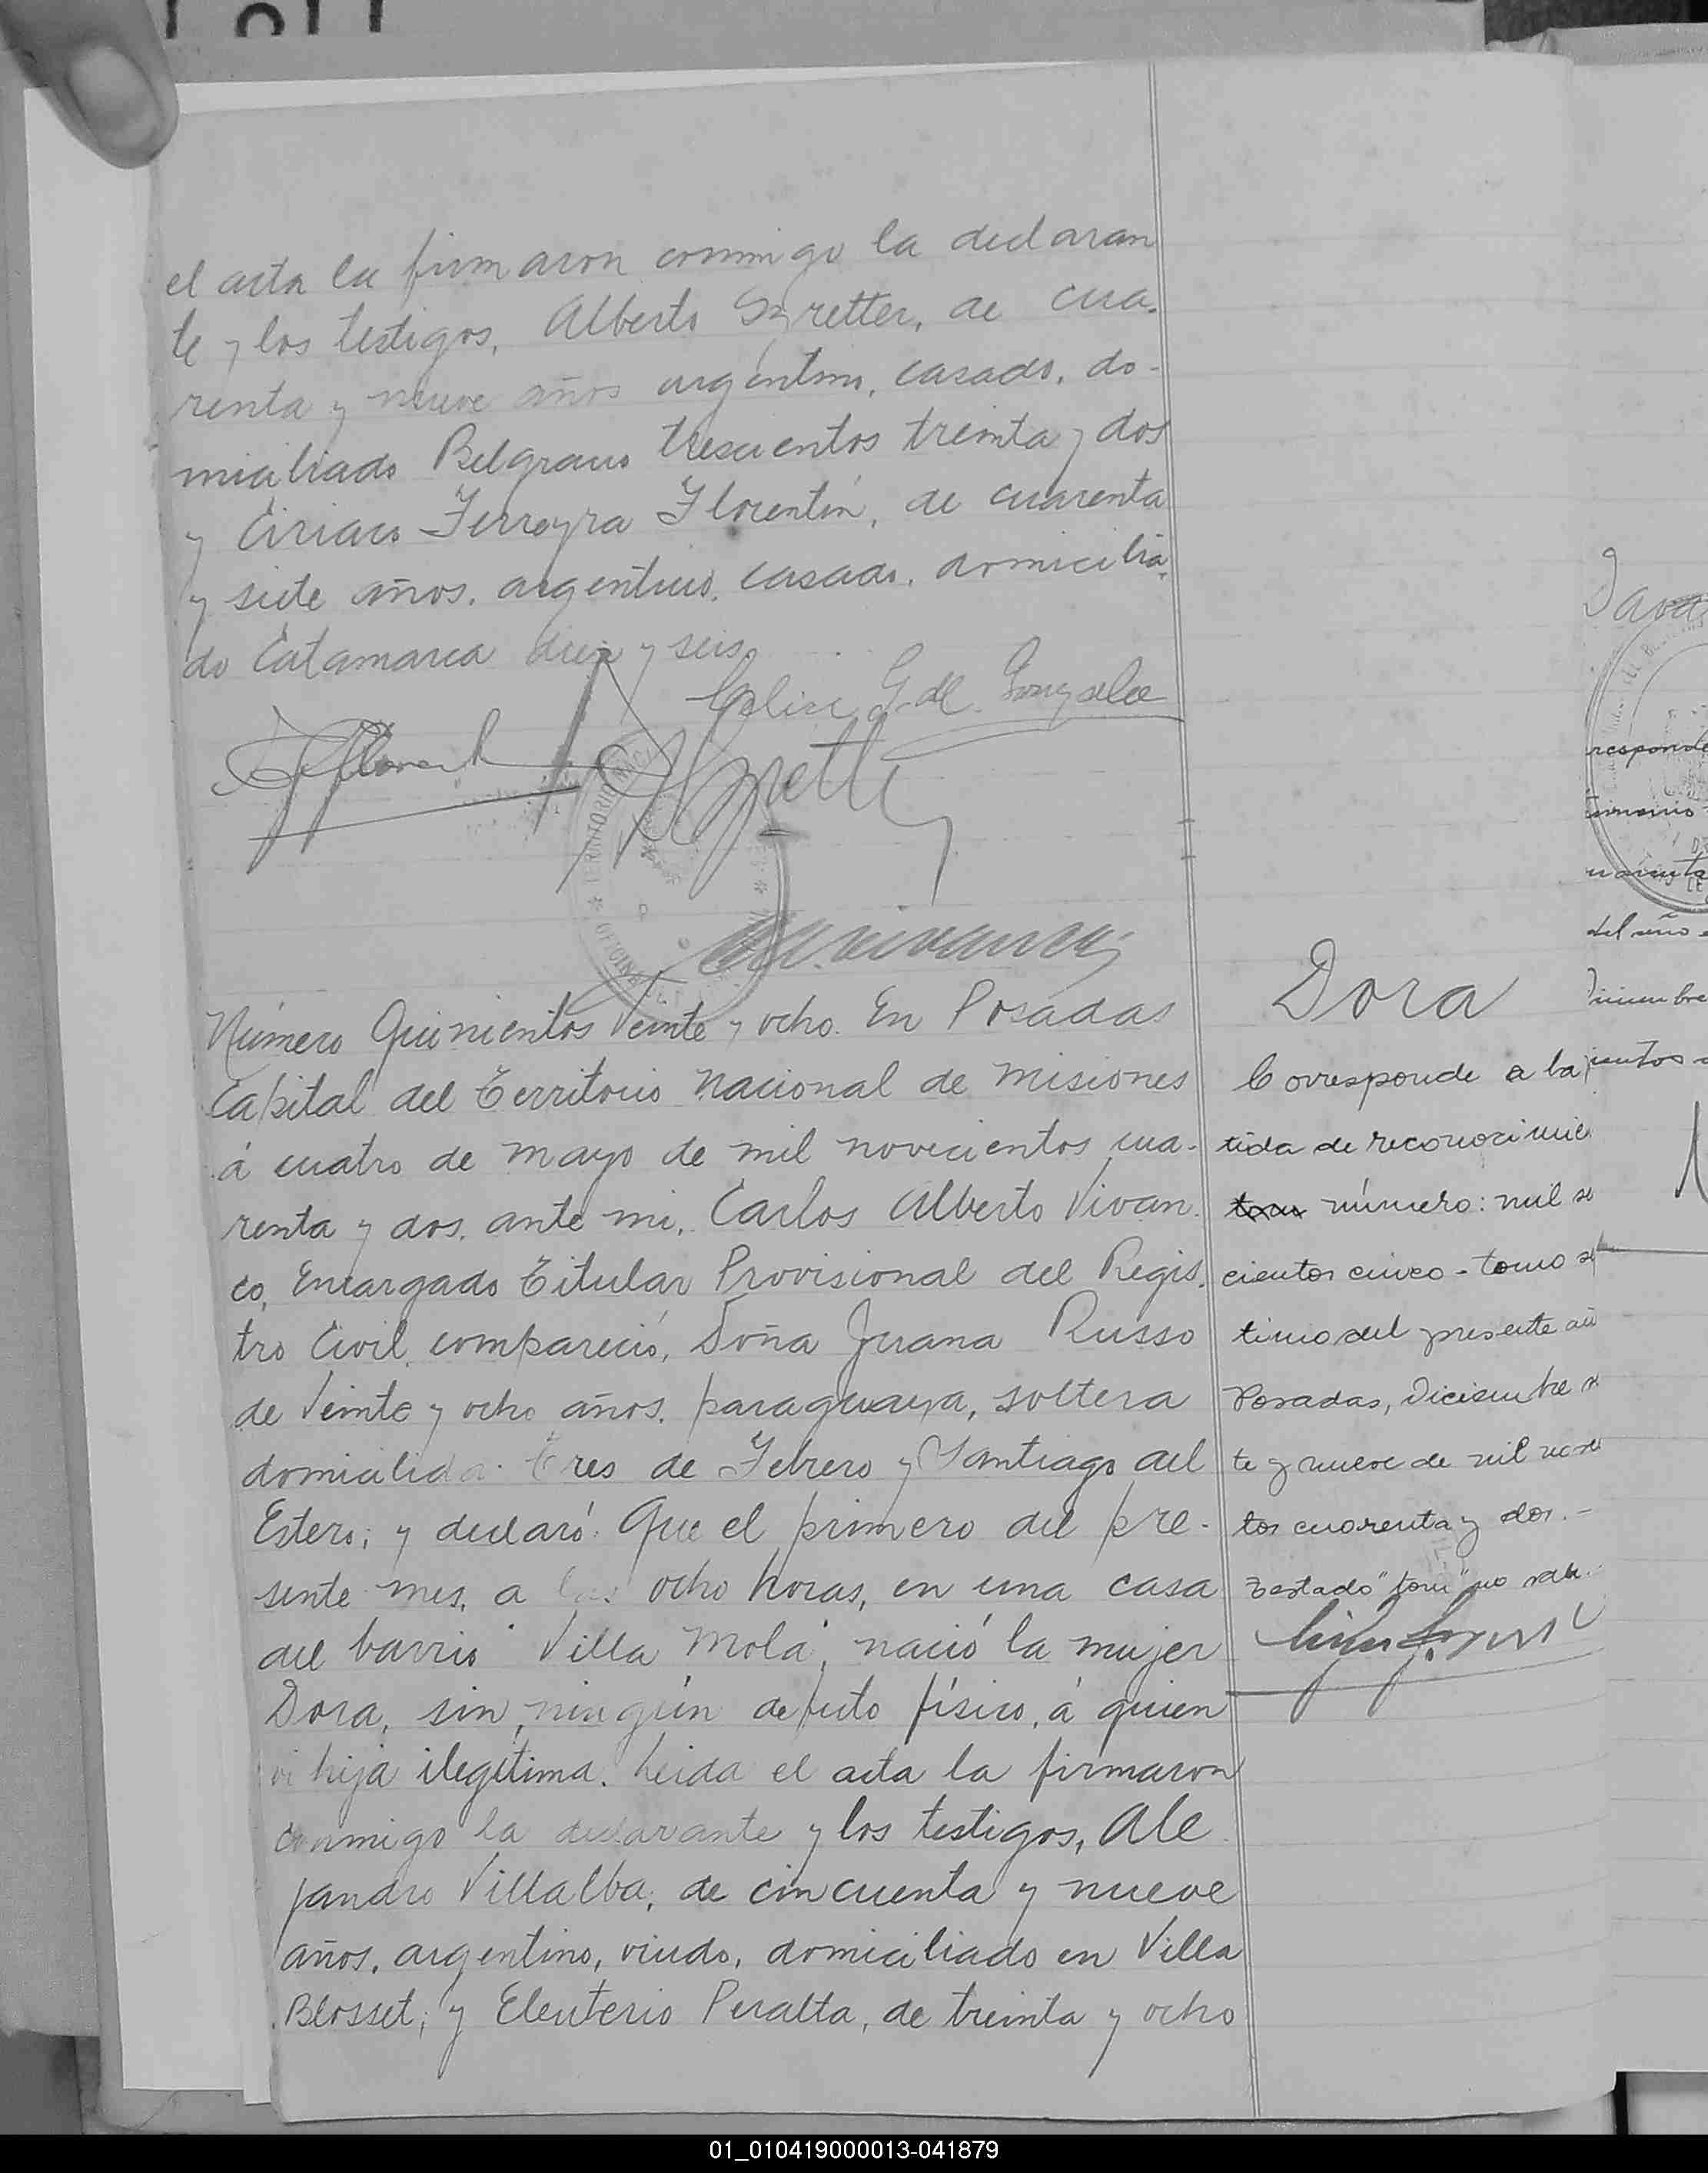 el acta la firmaron conmigo la declaran
te y los testigos, Alberto Szretter, de cua-
renta y nueve años argentino, casado, do-
miciliado Belgrano trescientos treinta y dos
y Ciriaco Ferreyra Florentín, de cuarenta
y siete años, argentino, casado, domicilia-
do Catamarca diez y seis.
G. de Gonzalez
Número Quinientos Veinte y ocho. En Posadas
Capital del Territorio Nacional de Misiones
á cuatro de mayo de mil novecientos cua-
renta y dos, ante mi, Carlos Alberto Vivan
co, Encargado Titular Provisional del Regis-
tro Civil, compareció, Doña Juana Russo
de Veinte y ocho años, paraguaya, soltera
domicilida Tres de Febrero y Santiago del
Estero; y declaró: Que el primero del pre-
sente mes, a las ocho horas, en una casa
del barrio "Villa Mola", nació la mujer
Dora, sin ningún defecto físico, á quien
vi hija ilegitima. Leida el acta la firmaron
conmigo la declarante y los testigos, Ale
jandro Villalba, de cincuenta y nueve
años, argentino, viudo, domiciliado en Villa
Blosset; y Eleuterio Peralta, de treinta y ocho
Dora
Corresponde a la
tida de reconocimie
número: mil se
cientos cinco - tomo se
timo del presente añ
Posadas, Diciembre
te y nueve de mil nove
tos cuarenta y dos.-
Testado "tom" no vale.
responde
del año
01_010419000013-041879